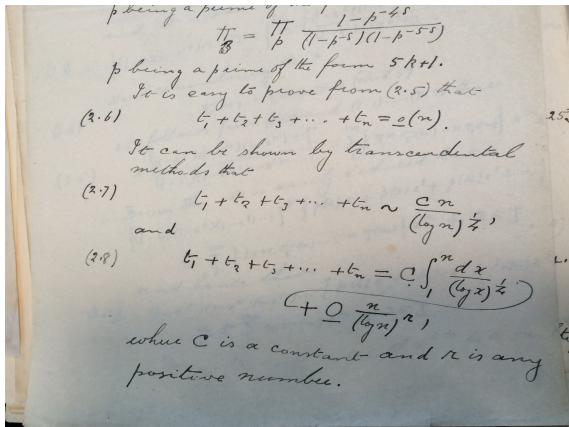 p being a prime of the
π₃ = π_p (1-p^-4s) / ((1-p^-s)(1-p^-5s))
p being a prime of the form 5k+1.
It is easy to prove from (2.5) that
(2.6) t₁+t₂+t₃+⋯+tₙ = o(n).
It can be shown by transcendental
methods that
(2.7) t₁+t₂+t₃+⋯+tₙ ~ Cn / (log n)^¼,
and
(2.8) t₁+t₂+t₃+⋯+tₙ = C ∫₁ⁿ dx / (log x)^¼
+ O n / (log n)^r,
where C is a constant and r is any
positive number.